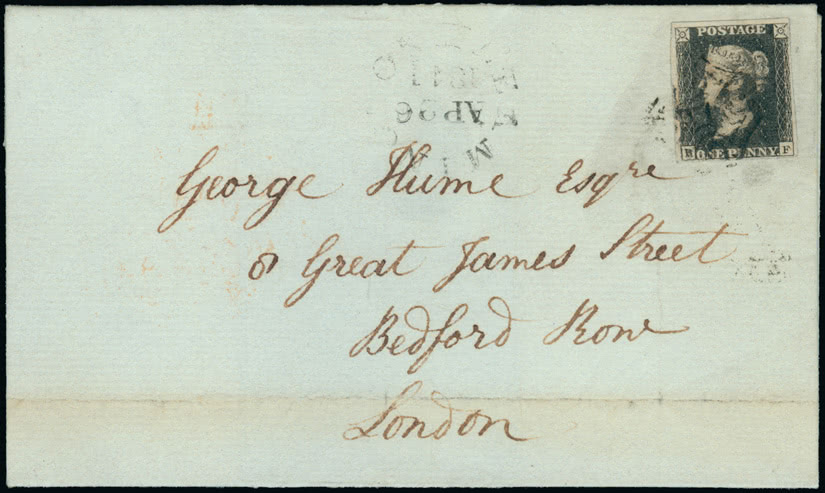 POSTAGE
ONE PENNY
F
AP 26
1841
George Hume Esqre
8 Great James Street
Bedford Row
London